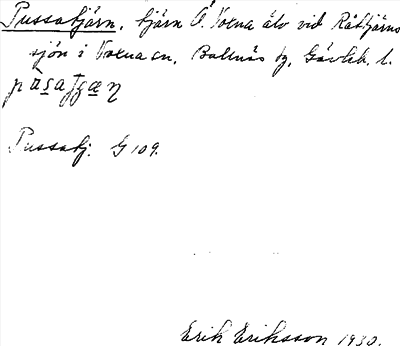 Pussatjärn. tjärn Ö. Voxna älv vid Råtjärns
sjön i Voxna sn. Bollnäs fg. Gävleb. l.
Pussatj. G 109.
Erik Eriksson 1930.